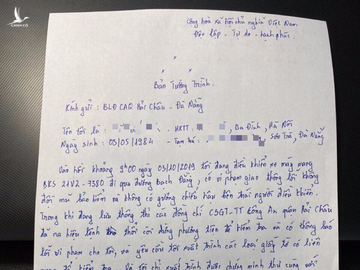 Cộng hòa xã hội chủ nghĩa Việt Nam
Độc lập - Tự do - hạnh phúc
Bản Tường Trình
Kính gửi: BLĐ CAQ Hải Châu - Đà Nẵng
Tên tôi là: - HKTT: , Ba Đình, Hà Nội
Ngày sinh: 03/05/1984 - Tạm trú: Sơn Trà, Đà Nẵng
Vào hồi khoảng 9h00 ngày 03/10/2019 tôi đang điều khiển xe máy mang
BKS 21V2-9380 đi qua đường bạch Đằng, có vi phạm giao thông lỗi không
đội mũ bảo hiểm và không có gương chiếu hậu bên trái người điều khiển.
Trong khi đang lưu thông thì các đồng chí CSGT-TT Công An quận Hải Châu
đã ra hiệu lệnh thời dừng phương tiện để kiểm tra và có thông báo
lỗi vi phạm cho tôi, và yêu cầu tôi xuất trình các loại giấy tờ có liên